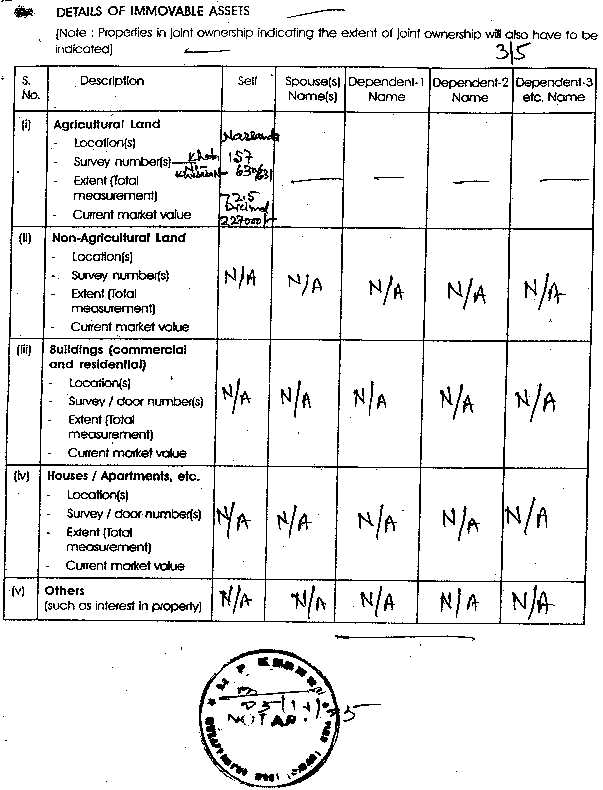 DETAILS OF IMMOVABLE ASSETS
(Note : Properties in joint ownership indicating the extent of joint ownership will also have to be
indicated)
3/5
S. No. Description Self Spouse(s) Name(s) Dependent-1 Name Dependent-2 Name Dependent-3 etc. Name
(i) Agricultural Land
- Location(s)
- Survey number(s) 157
- Extent (Total 630/631
measurement) 72.5
- Current market value 227000/-
(ii) Non-Agricultural Land
- Location(s)
- Survey number(s) N/A N/A N/A N/A N/A
- Extent (Total
measurement)
- Current market value
(iii) Buildings (commercial
and residential)
- Location(s)
- Survey / door number(s) N/A N/A N/A N/A N/A
- Extent (Total
measurement)
- Current market value
(iv) Houses / Apartments, etc.
- Location(s)
- Survey / door number(s) N/A N/A N/A N/A N/A
- Extent (Total
measurement)
- Current market value
(v) Others
(such as interest in property) N/A N/A N/A N/A N/A